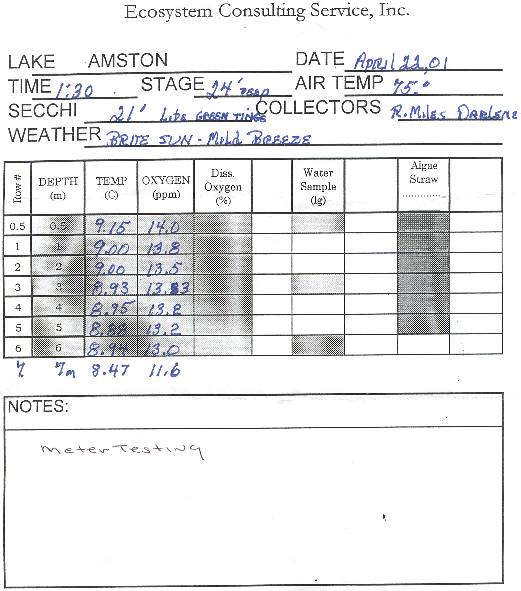 Ecosystem Consulting Service, Inc.
LAKE AMSTON DATE APRIL 22, 01
TIME 1:30 STAGE 24' AIR TEMP 75.°
SECCHI 21' Lite GREEN TINGE COLLECTORS R. Miles DARLENE
WEATHER BRITE SUN - Mild BREEZE
Row # DEPTH (m) TEMP (C) OXYGEN (ppm) Diss. Oxygen (%) Water Sample (lg) Algae Straw ..............
0.5 0.5 9.15 14.0
1 1 9.00 13.8
2 2 9.00 13.5
3 3 8.93
4 4 8.95 13.2
5 5 13.2
6 6 8.94 13.0
7 7m 8.47 11.6
NOTES:
Meter Testing